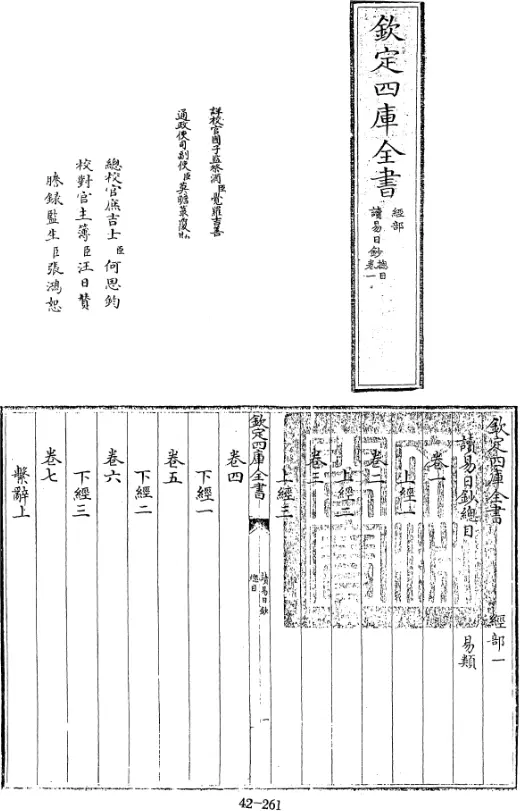 欽定四庫全書
經部
讀易日鈔
總目
卷一
詳校官國子監祭酒臣覺羅吉善
通政使司副使臣莫瞻菉覆勘
總校官庶吉士臣何思鈞
校對官主簿臣汪日贊
謄錄監生臣張鴻恕
欽定四庫全書
經部一
讀易日鈔總目
易類
卷一
上經一
卷二
上經二
卷三
上經三
欽定四庫全書
讀易日鈔
總目
卷四
下經一
卷五
下經二
卷六
下經三
卷七
繫辭上
42-261